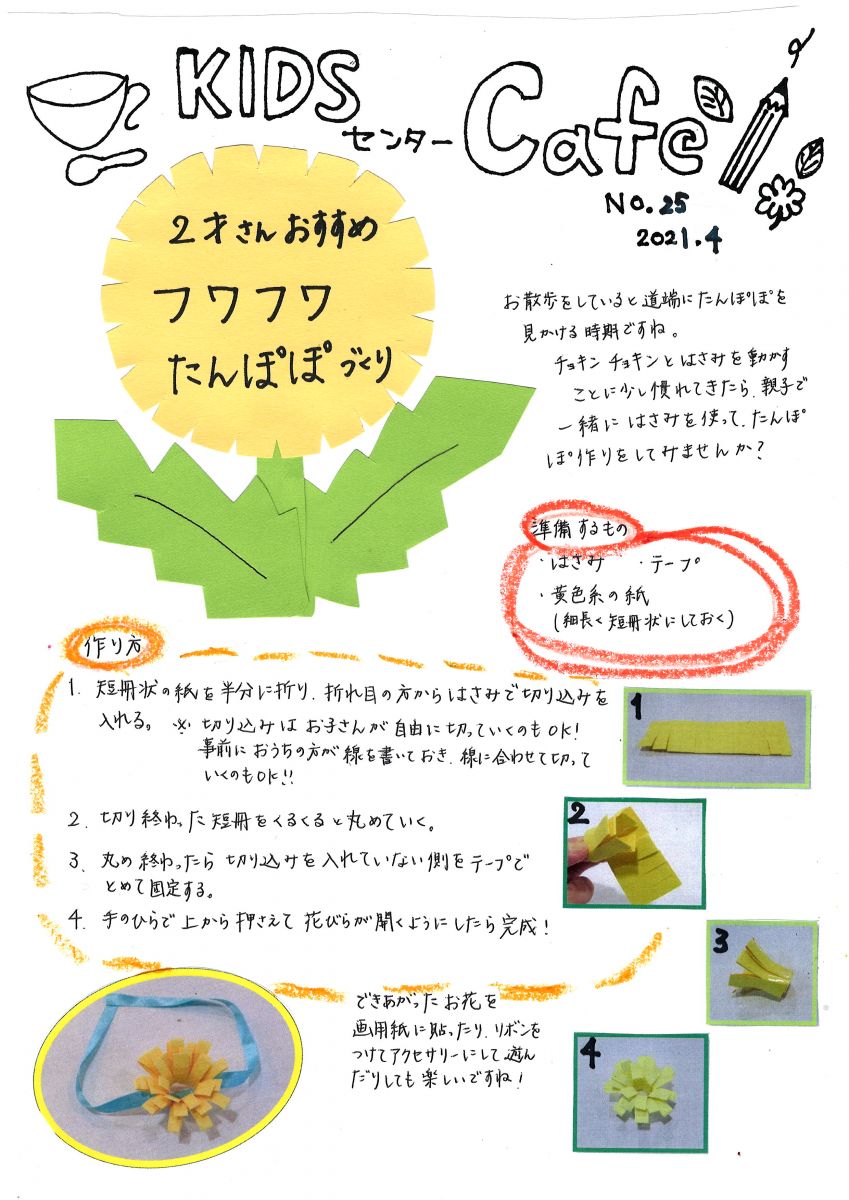 KIDS
センター Cafe
No.25
2021.4
2才さんおすすめ
フワフワ
たんぽぽづくり
お散歩をしていると道端にたんぽぽを
見かける時期ですね。
チョキンチョキンとはさみを動かす
ことに少し慣れてきたら、親子で
一緒にはさみを使って、たんぽ
ぽ作りをしてみませんか?
準備するもの
・はさみ ・テープ
・黄色系の紙
(細長く短冊状にしておく)
作り方
1. 短冊状の紙を半分に折り、折れ目の方からはさみで切り込みを
入れる。 ※切り込みはお子さんが自由に切っていくのもOK!
事前におうちの方が線を書いておき、線に合わせて切って
いくのもOK!!
2. 切り終わった短冊をくるくると丸めていく。
3. 丸め終わったら切り込みを入れていない側をテープで
とめて固定する。
4. 手のひらで上から押さえて花びらが開くようにしたら完成!
1
2
3
4
できあがったお花を
画用紙に貼ったり、リボンを
つけてアクセサリーにして遊ん
だりしても楽しいですね!